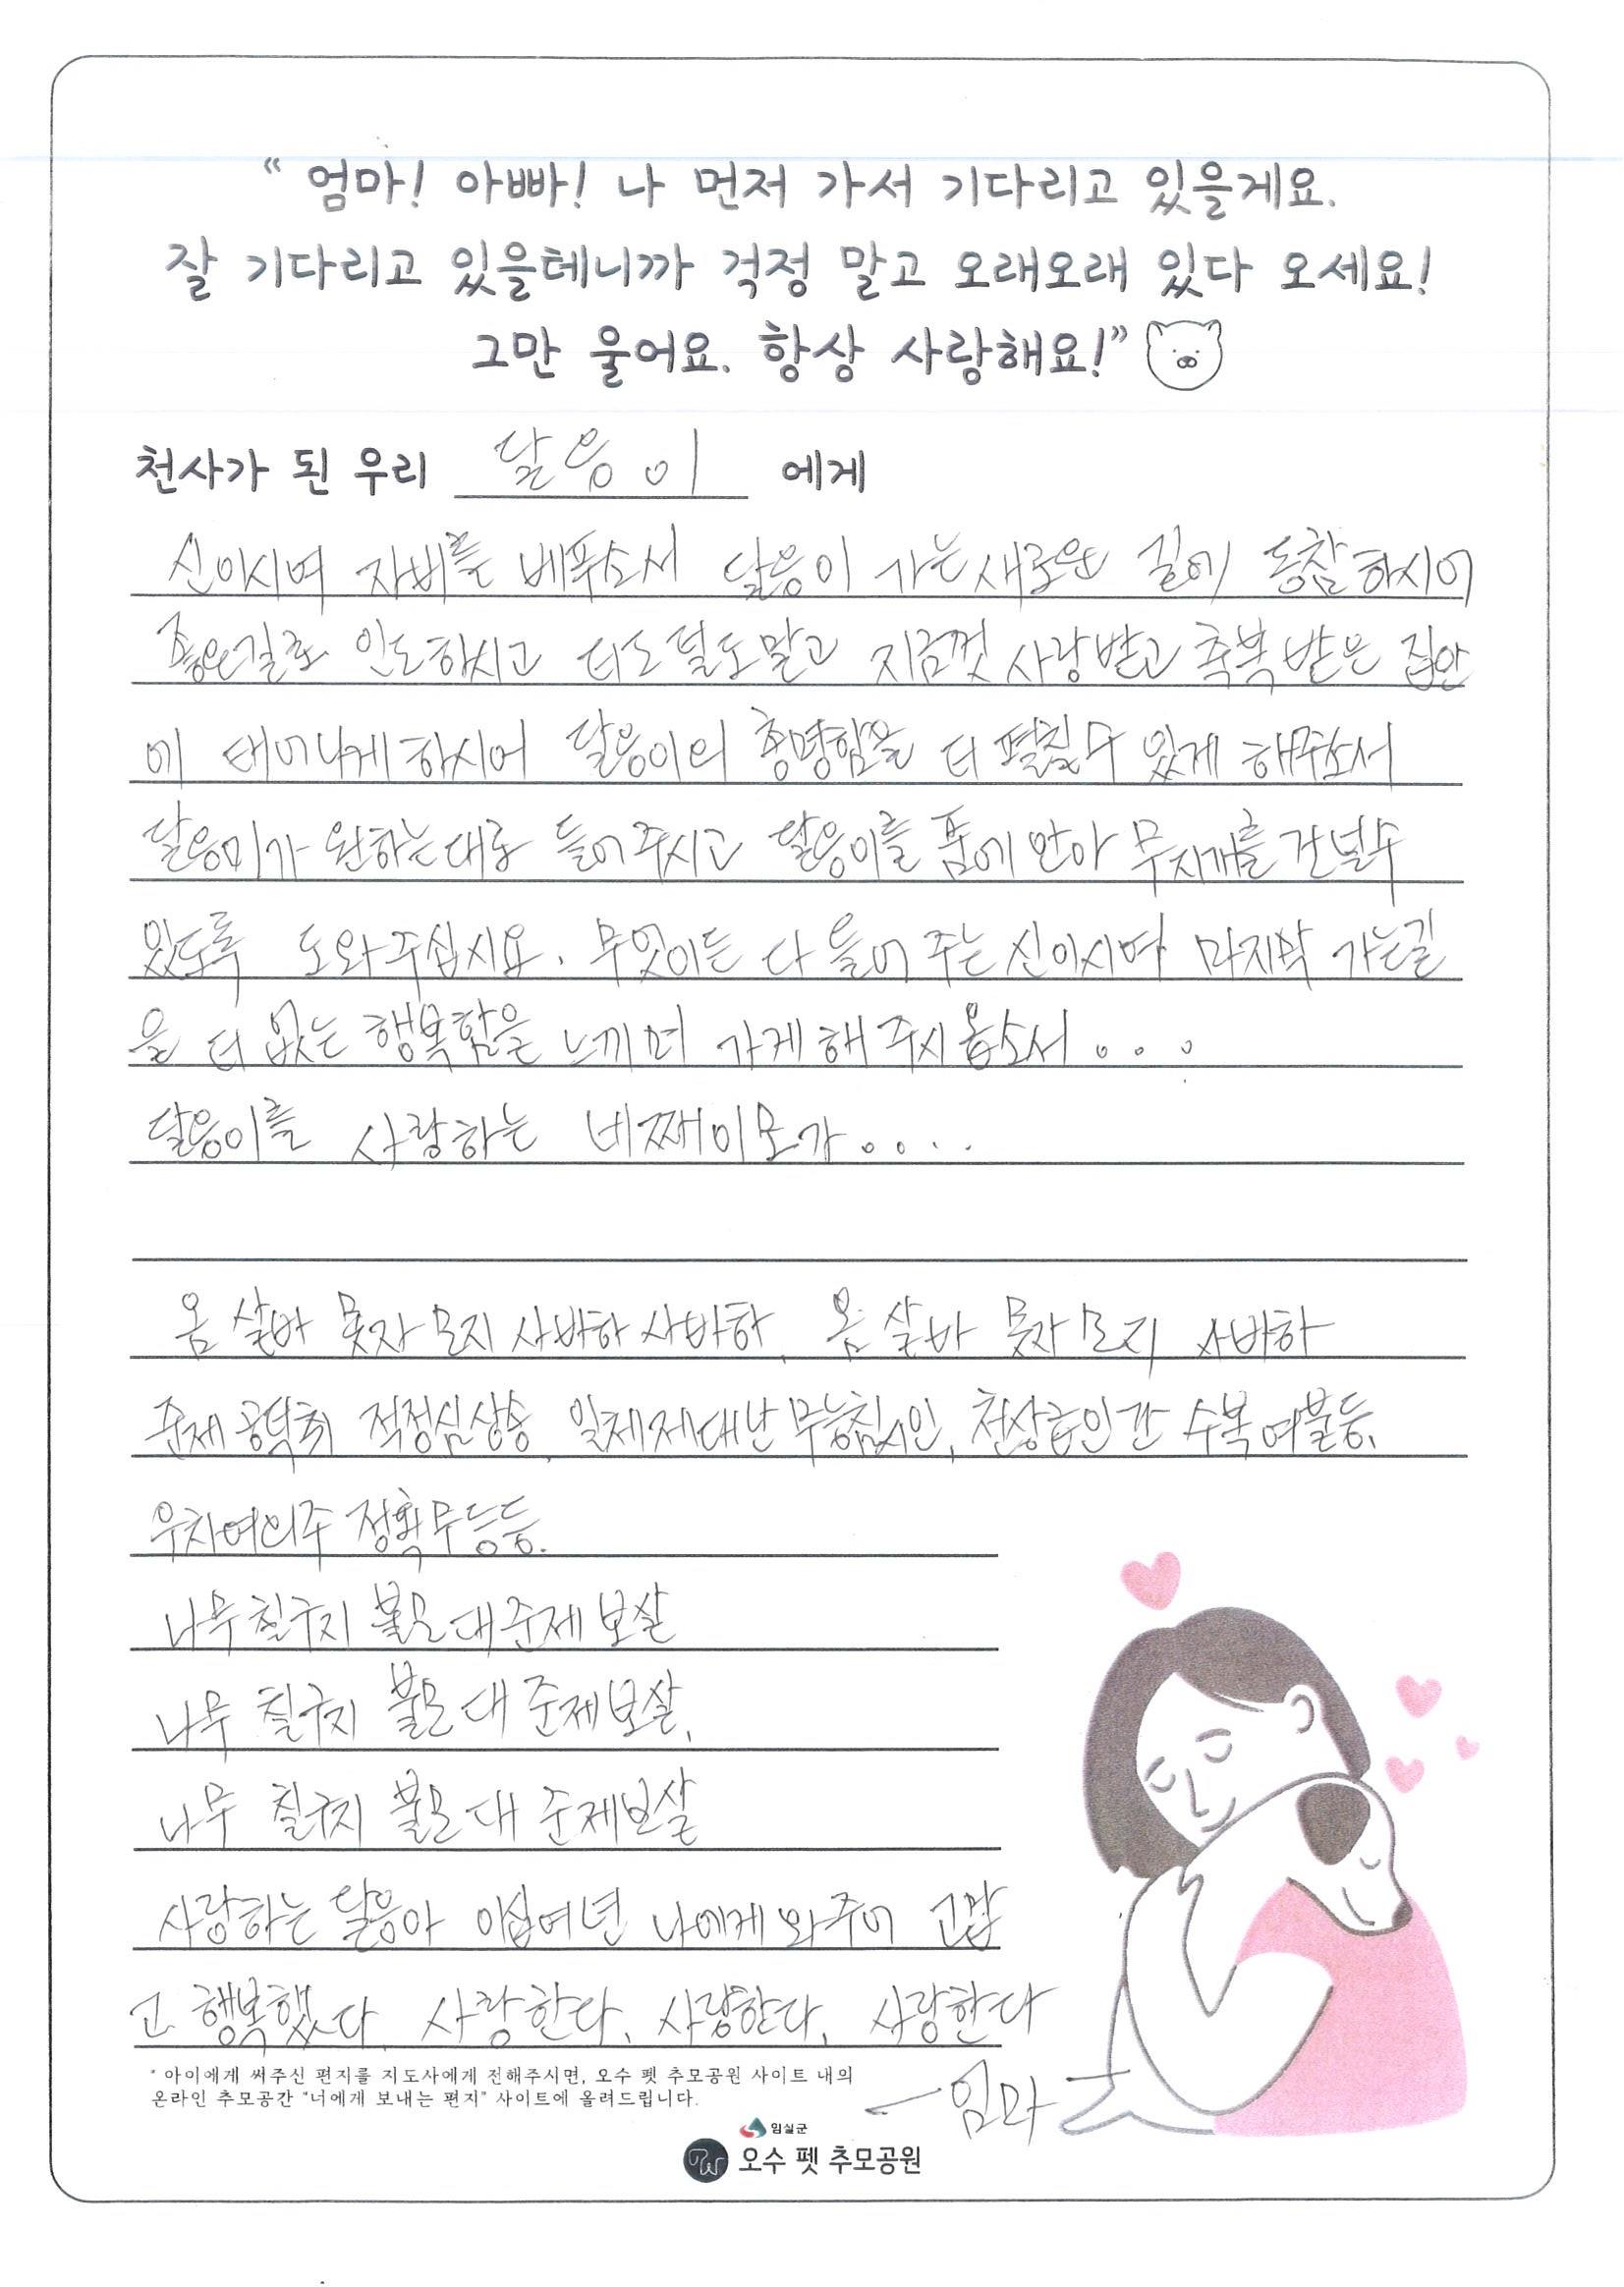 “ 엄마! 아빠! 나 먼저 가서 기다리고 있을게요.
잘 기다리고 있을테니까 걱정 말고 오래오래 있다 오세요!
그만 울어요. 항상 사랑해요!”
천사가 된 우리 달응이 에게
신이시여 자비를 베푸소서 달응이 가는 새로운 길에 동참하시어
좋은길로 인도하시고 더도 덜도말고 지금껏 사랑받고 축복 받은 집안
에 태어나게 하시어 달응이의 총명함을 더 펼칠수 있게 해주소서
달응이가 원하는대로 들어주시고 달응이를 품에 안아 무지개를 건널수
있도록 도와주십시요. 무엇이든 다 들어 주는 신이시여 마지막 가는길
을 더 없는 행복함을 느끼며 가게 해 주시옵소서...
달응이를 사랑하는 네째이모가....
옴 살바 못자 모지 사바하 사바하, 옴 살바 못자 모지 사바하
준제공덕취 적정심상송, 일체제대난 무능침시인, 천상급인간 수복여불등,
우차여의주 정획무등등.
나무칠구지 불모대준제보살
나무 칠구지 불모대 준제보살,
나무 칠구지 불모대 준제보살
사랑하는 달응아 이십여년 나에게 와주어 고맙
고 행복했다. 사랑한다, 사랑한다, 사랑한다
- 엄마 -
* 아이에게 써주신 편지를 지도사에게 전해주시면, 오수 펫 추모공원 사이트 내의
온라인 추모공간 "너에게 보내는 편지" 사이트에 올려드립니다.
임실군
오수 펫 추모공원